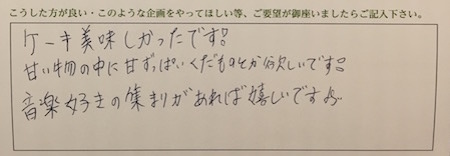 こうした方が良い・このような企画をやってほしい等、ご要望が御座いましたらご記入下さい。
ケーキ美味しかったです。
甘い物の中に甘ずっぱいくだものとか欲しいです。
音楽好きの集まりがあれば嬉しいです♪